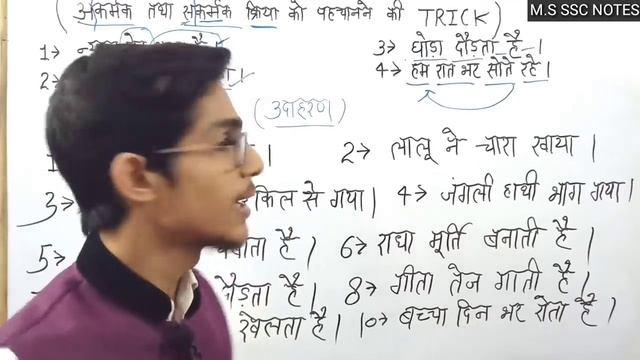 (अकर्मक तथा सकर्मक क्रिया को पहचानने की TRICK)
M.S SSC NOTES
1→
3→ घोड़ा दौड़ता है।
2→
4→ हम रात भर सोते रहे।
(उदाहरण)
2→ लालू ने चारा खाया।
3→ किल से गया।
4→ जंगली हाथी भाग गया।
5→ है।
6→ राधा मूर्ति बनाती है।
दौड़ता है।
8→ गीता तेज गाती है।
खेलता है।
10→ बच्चा दिन भर रोता है।